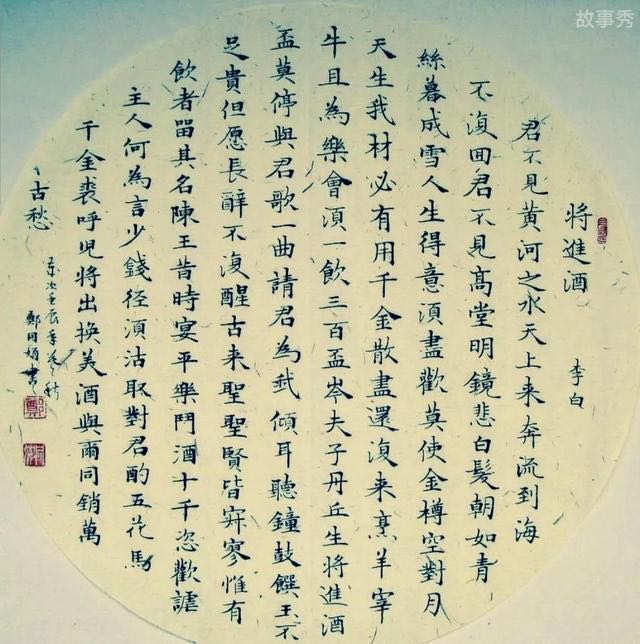 故事秀
將進酒
李白
君不見黃河之水天上来奔流到海
不復囬君不見高堂明鏡悲白髮朝如青
絲暮成雪人生得意須盡歡莫使金樽空對月
天生我材必有用千金散盡還復来烹羊宰
牛且為樂會須一飲三百盃岑夫子丹丘生將進酒
盃莫停與君歌一曲請君為我傾耳聽鐘鼓饌玉不
足貴但愿長辭不復醒古来聖聖賢皆寂寥惟有
飲者留其名陳王昔時宴平樂鬥酒十千恣歡謔
主人何為言少錢径須沽取對君酌五花馬
千金裘呼兒將出換美酒與爾同銷萬
古愁
歲次壬辰年秋
鄭同書